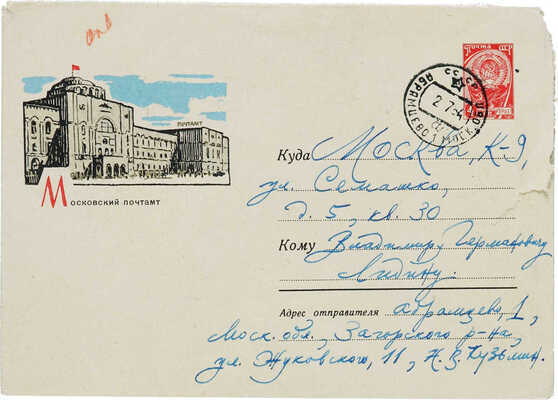 ПОЧТА СССР
СССР
АБРАМЦЕВО
2.7.64
ПОЧТАМТ
Московский почтамт
Куда Москва, К-9,
ул. Семашко,
д. 5, кв. 30
Кому Владимиру Германовичу
Лидину.
Адрес отправителя Абрамцево, 1,
Моск. обл., Загорского р-на,
ул. Жуковского, 11, Н. В. Кузьмин.